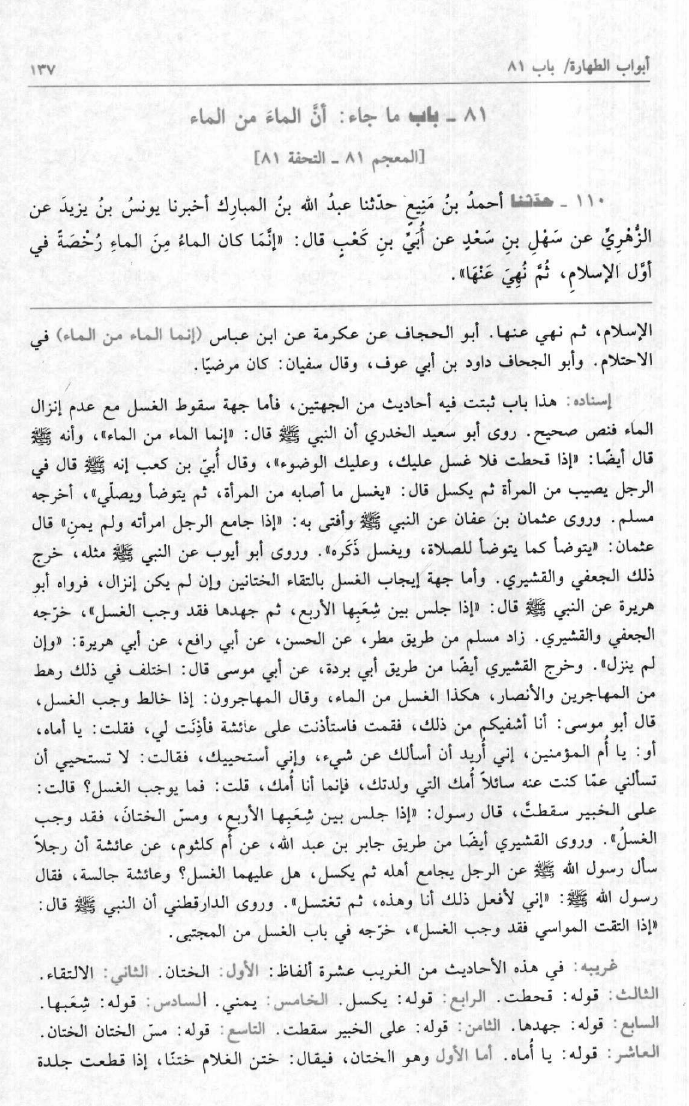 أبواب الطهارة/ باب ٨١
١٣٧
٨١ ـ باب ما جاء: أنَّ الماءَ من الماء
[المعجم ٨١ ـ التحفة ٨١]
١١٠ ـ حدّثنا أحمدُ بنُ مَنِيعٍ حدّثنا عبدُ الله بنُ المبارِك أخبرنا يونسُ بنُ يزيدَ عن
الزُّهْرِيِّ عن سَهْلِ بنِ سَعْدٍ عن أُبَيِّ بنِ كَعْبٍ قال: «إنَّمَا كان الماءُ مِنَ الماءِ رُخْصَةً في
أوَّل الإسلامِ، ثُمَّ نُهِيَ عَنْهَا».
الإسلام، ثم نهي عنها. أبو الحجاف عن عكرمة عن ابن عباس (إنما الماء من الماء) في
الاحتلام. وأبو الجحاف داود بن أبي عوف، وقال سفيان: كان مرضيًا.
إسناده: هذا باب ثبتت فيه أحاديث من الجهتين، فأما جهة سقوط الغسل مع عدم إنزال
الماء فنص صحيح. روى أبو سعيد الخدري أن النبي ﷺ قال: «إنما الماء من الماء»، وأنه ﷺ
قال أيضًا: «إذا قحطت فلا غسل عليك، وعليك الوضوء»، وقال أُبيّ بن كعب إنه ﷺ قال في
الرجل يصيب من المرأة ثم يكسل قال: «يغسل ما أصابه من المرأة، ثم يتوضأ ويصلّي»، أخرجه
مسلم. وروى عثمان بن عفان عن النبي ﷺ وأفتى به: «إذا جامع الرجل امرأته ولم يمنِ» قال
عثمان: «يتوضأ كما يتوضأ للصلاة، ويغسل ذَكَره». وروى أبو أيوب عن النبي ﷺ مثله، خرج
ذلك الجعفي والقشيري. وأما جهة إيجاب الغسل بالتقاء الختانين وإن لم يكن إنزال، فرواه أبو
هريرة عن النبي ﷺ قال: «إذا جلس بين شِعَبِها الأربع، ثم جهدها فقد وجب الغسل»، خرّجه
الجعفي والقشيري. زاد مسلم من طريق مطر، عن الحسن، عن أبي رافع، عن أبي هريرة: «وإن
لم ينزل». وخرج القشيري أيضًا من طريق أبي بردة، عن أبي موسى قال: اختلف في ذلك رهط
من المهاجرين والأنصار، هكذا الغسل من الماء، وقال المهاجرون: إذا خالط وجب الغسل،
قال أبو موسى: أنا أشفيكم من ذلك، فقمت فاستأذنت على عائشة فأذِنَت لي، فقلت: يا أماه،
أو: يا أُم المؤمنين، إني أُريد أن أسألك عن شيء، وإني أستحييك، فقالت: لا تستحيي أن
تسألني عمّا كنت عنه سائلاً أُمك التي ولدتك، فإنما أنا أُمك، قلت: فما يوجب الغسل؟ قالت:
على الخبير سقطتَّ، قال رسول: «إذا جلس بين شِعَبِها الأربع، ومسّ الختانَ، فقد وجب
الغسلُ». وروى القشيري أيضًا من طريق جابر بن عبد الله، عن أُم كلثوم، عن عائشة أن رجلاً
سأل رسول الله ﷺ عن الرجل يجامع أهله ثم يكسل، هل عليهما الغسل؟ وعائشة جالسة، فقال
رسول الله ﷺ: «إني لأفعل ذلك أنا وهذه، ثم تغتسل». وروى الدارقطني أن النبي ﷺ قال:
«إذا التقت المواسي فقد وجب الغسل»، خرّجه في باب الغسل من المجتبى.
غريبه: في هذه الأحاديث من الغريب عشرة ألفاظ: الأول: الختان. الثاني: الالتقاء.
الثالث: قوله: قحطت. الرابع: قوله: يكسل. الخامس: يمني. السادس: قوله: شِعَبها.
السابع: قوله: جهدها. الثامن: قوله: على الخبير سقطت. التاسع: قوله: مسّ الختان الختان.
العاشر: قوله: يا أُماه. أما الأول وهو الختان، فيقال: ختن الغلام ختنًا، إذا قطعت جلدة